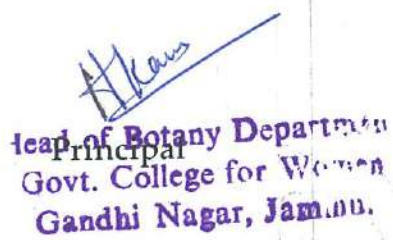 Head of Botany Department
Principal
Govt. College for Women
Gandhi Nagar, Jammu.